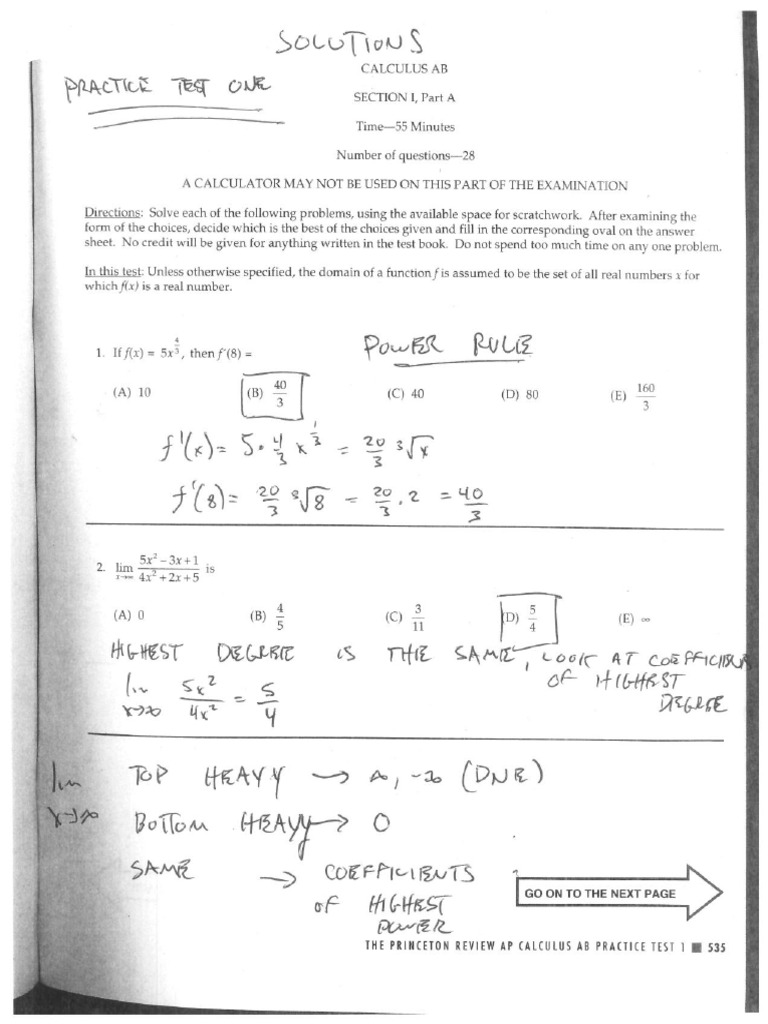 SOLUTIONS
PRACTICE TEST ONE
CALCULUS AB
SECTION I, Part A
Time—55 Minutes
Number of questions—28
A CALCULATOR MAY NOT BE USED ON THIS PART OF THE EXAMINATION
Directions: Solve each of the following problems, using the available space for scratchwork. After examining the
form of the choices, decide which is the best of the choices given and fill in the corresponding oval on the answer
sheet. No credit will be given for anything written in the test book. Do not spend too much time on any one problem.
In this test: Unless otherwise specified, the domain of a function f is assumed to be the set of all real numbers x for
which f(x) is a real number.
POWER RULE
1. If f(x) = 5x^(4/3), then f'(8) =
(A) 10 (B) 40/3 (C) 40 (D) 80 (E) 160/3
f'(x) = 5 · 4/3 x^(1/3) = 20/3 ³√x
f'(8) = 20/3 ³√8 = 20/3 · 2 = 40/3
2. lim x→∞ (5x² − 3x + 1)/(4x² + 2x + 5) is
(A) 0 (B) 4/5 (C) 3/11 (D) 5/4 (E) ∞
HIGHEST DEGREE IS THE SAME, LOOK AT COEFFICIENTS
OF HIGHEST
DEGREE
lim x→∞ 5x²/4x² = 5/4
lim x→∞ TOP HEAVY → ∞, -∞ (DNE)
BOTTOM HEAVY → 0
SAME → COEFFICIENTS
OF HIGHEST
POWER
GO ON TO THE NEXT PAGE
THE PRINCETON REVIEW AP CALCULUS AB PRACTICE TEST 1 ■ 535